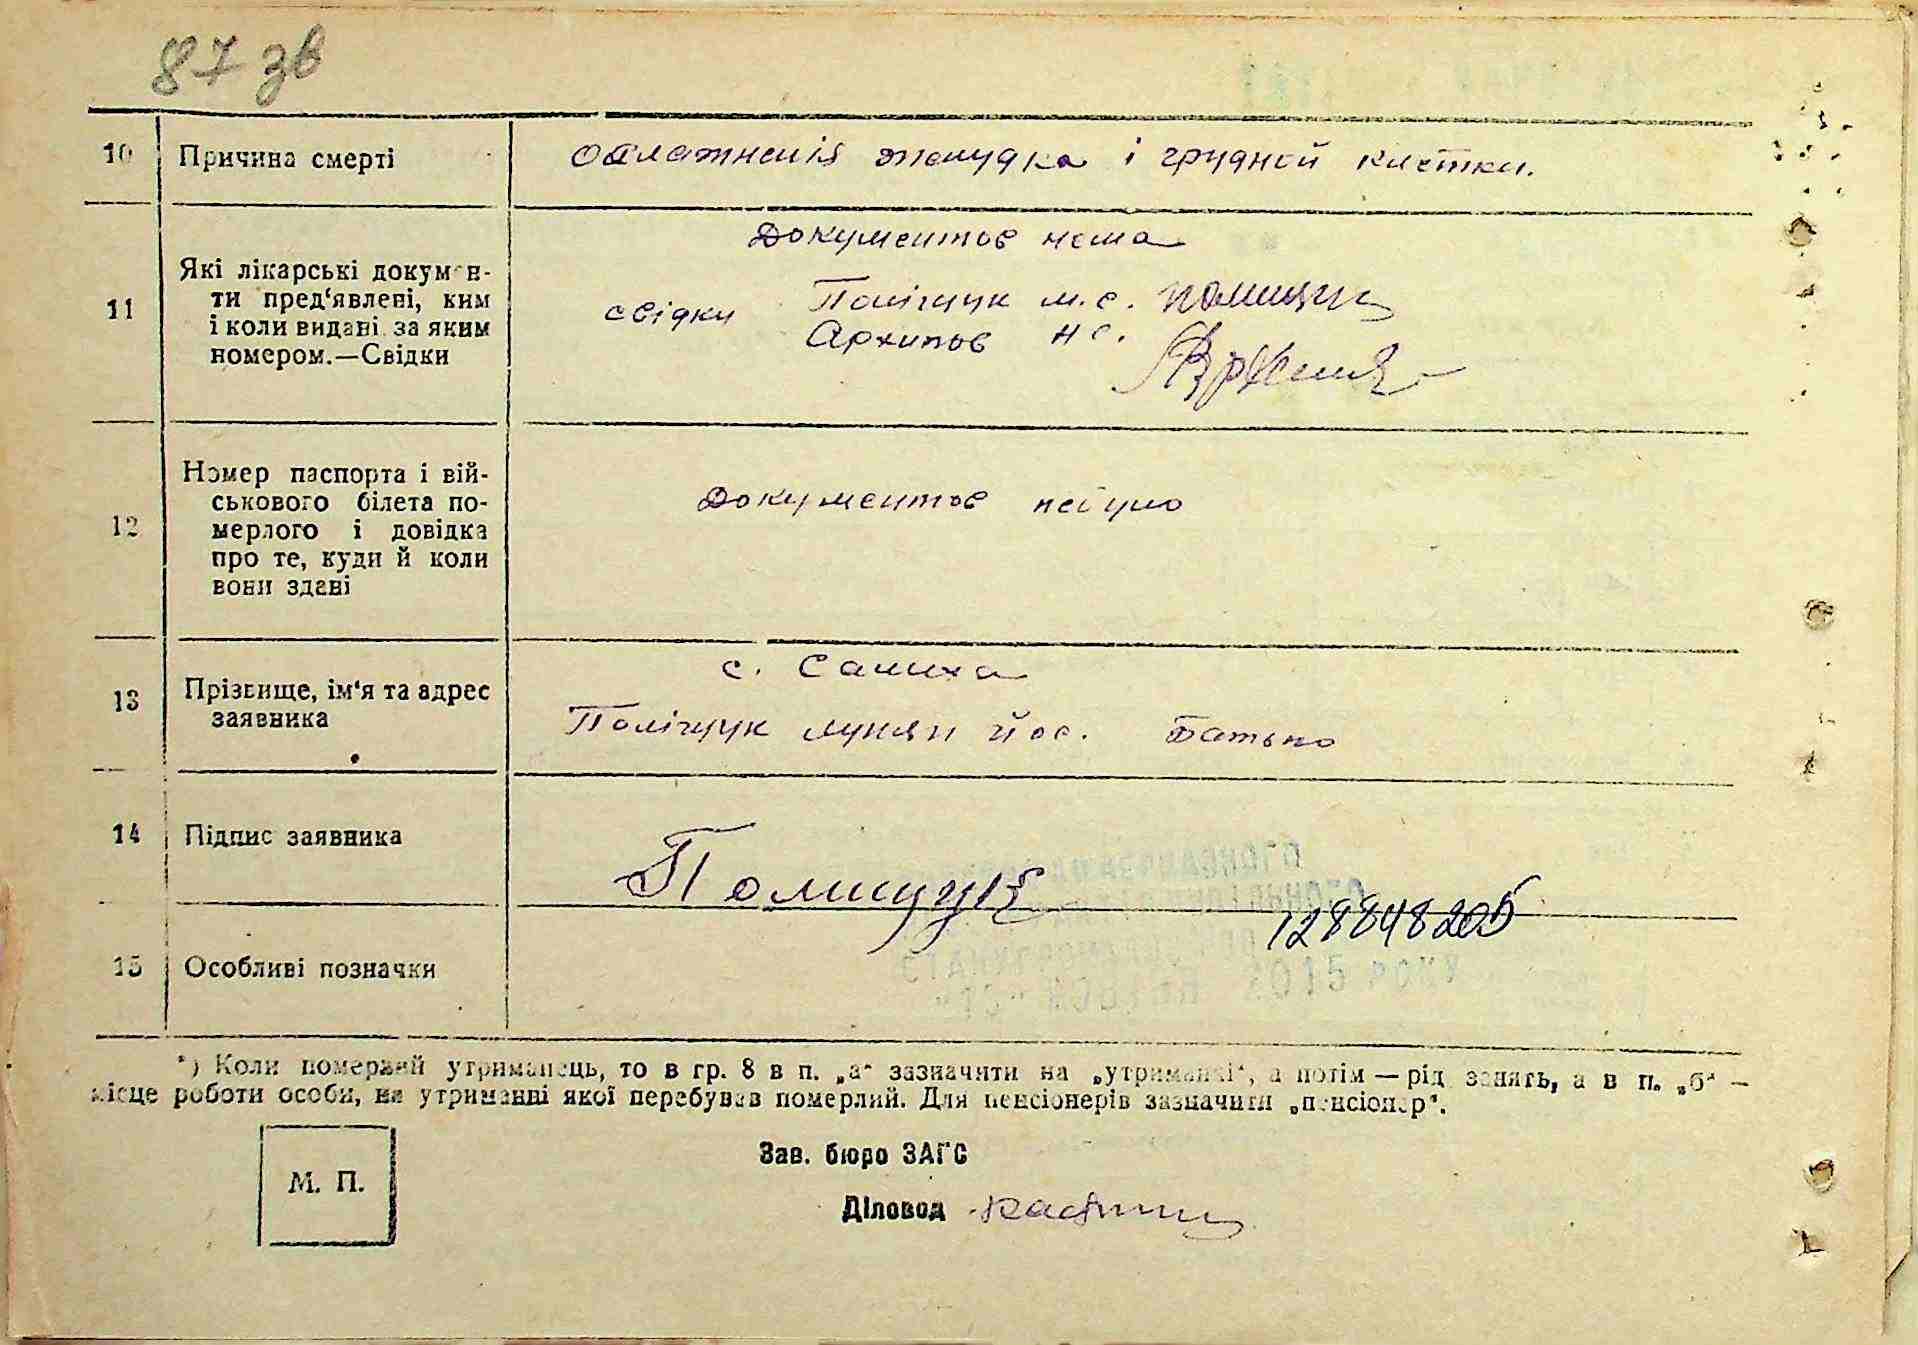 87 зв
10 Причина смерті
желудка і грудной клетки.
11 Які лікарські докумен-
ти пред'явлені, ким
і коли видані за яким
номером.—Свідки
Документов нема
свідки Поліщук м.с.
Архипов н с.
12 Номер паспорта і вій-
ськового білета по-
мерлого і довідка
про те, куди й коли
вони здані
Документов небуло
13 Прізвище, ім'я та адрес
заявника
с. Самиха
Поліщук Йос. Батько
14 Підпис заявника
Полищук
128848205
15 Особливі позначки
*) Коли померлий утриманець, то в гр. 8 в п. „а" зазначити на „утриманні", а потім — рід занять, а в п. „б" —
місце роботи особи, на утриманні якої перебував померлий. Для пенсіонерів зазначити „пенсіонер".
М. П.
Зав. бюро ЗАГС
Діловод